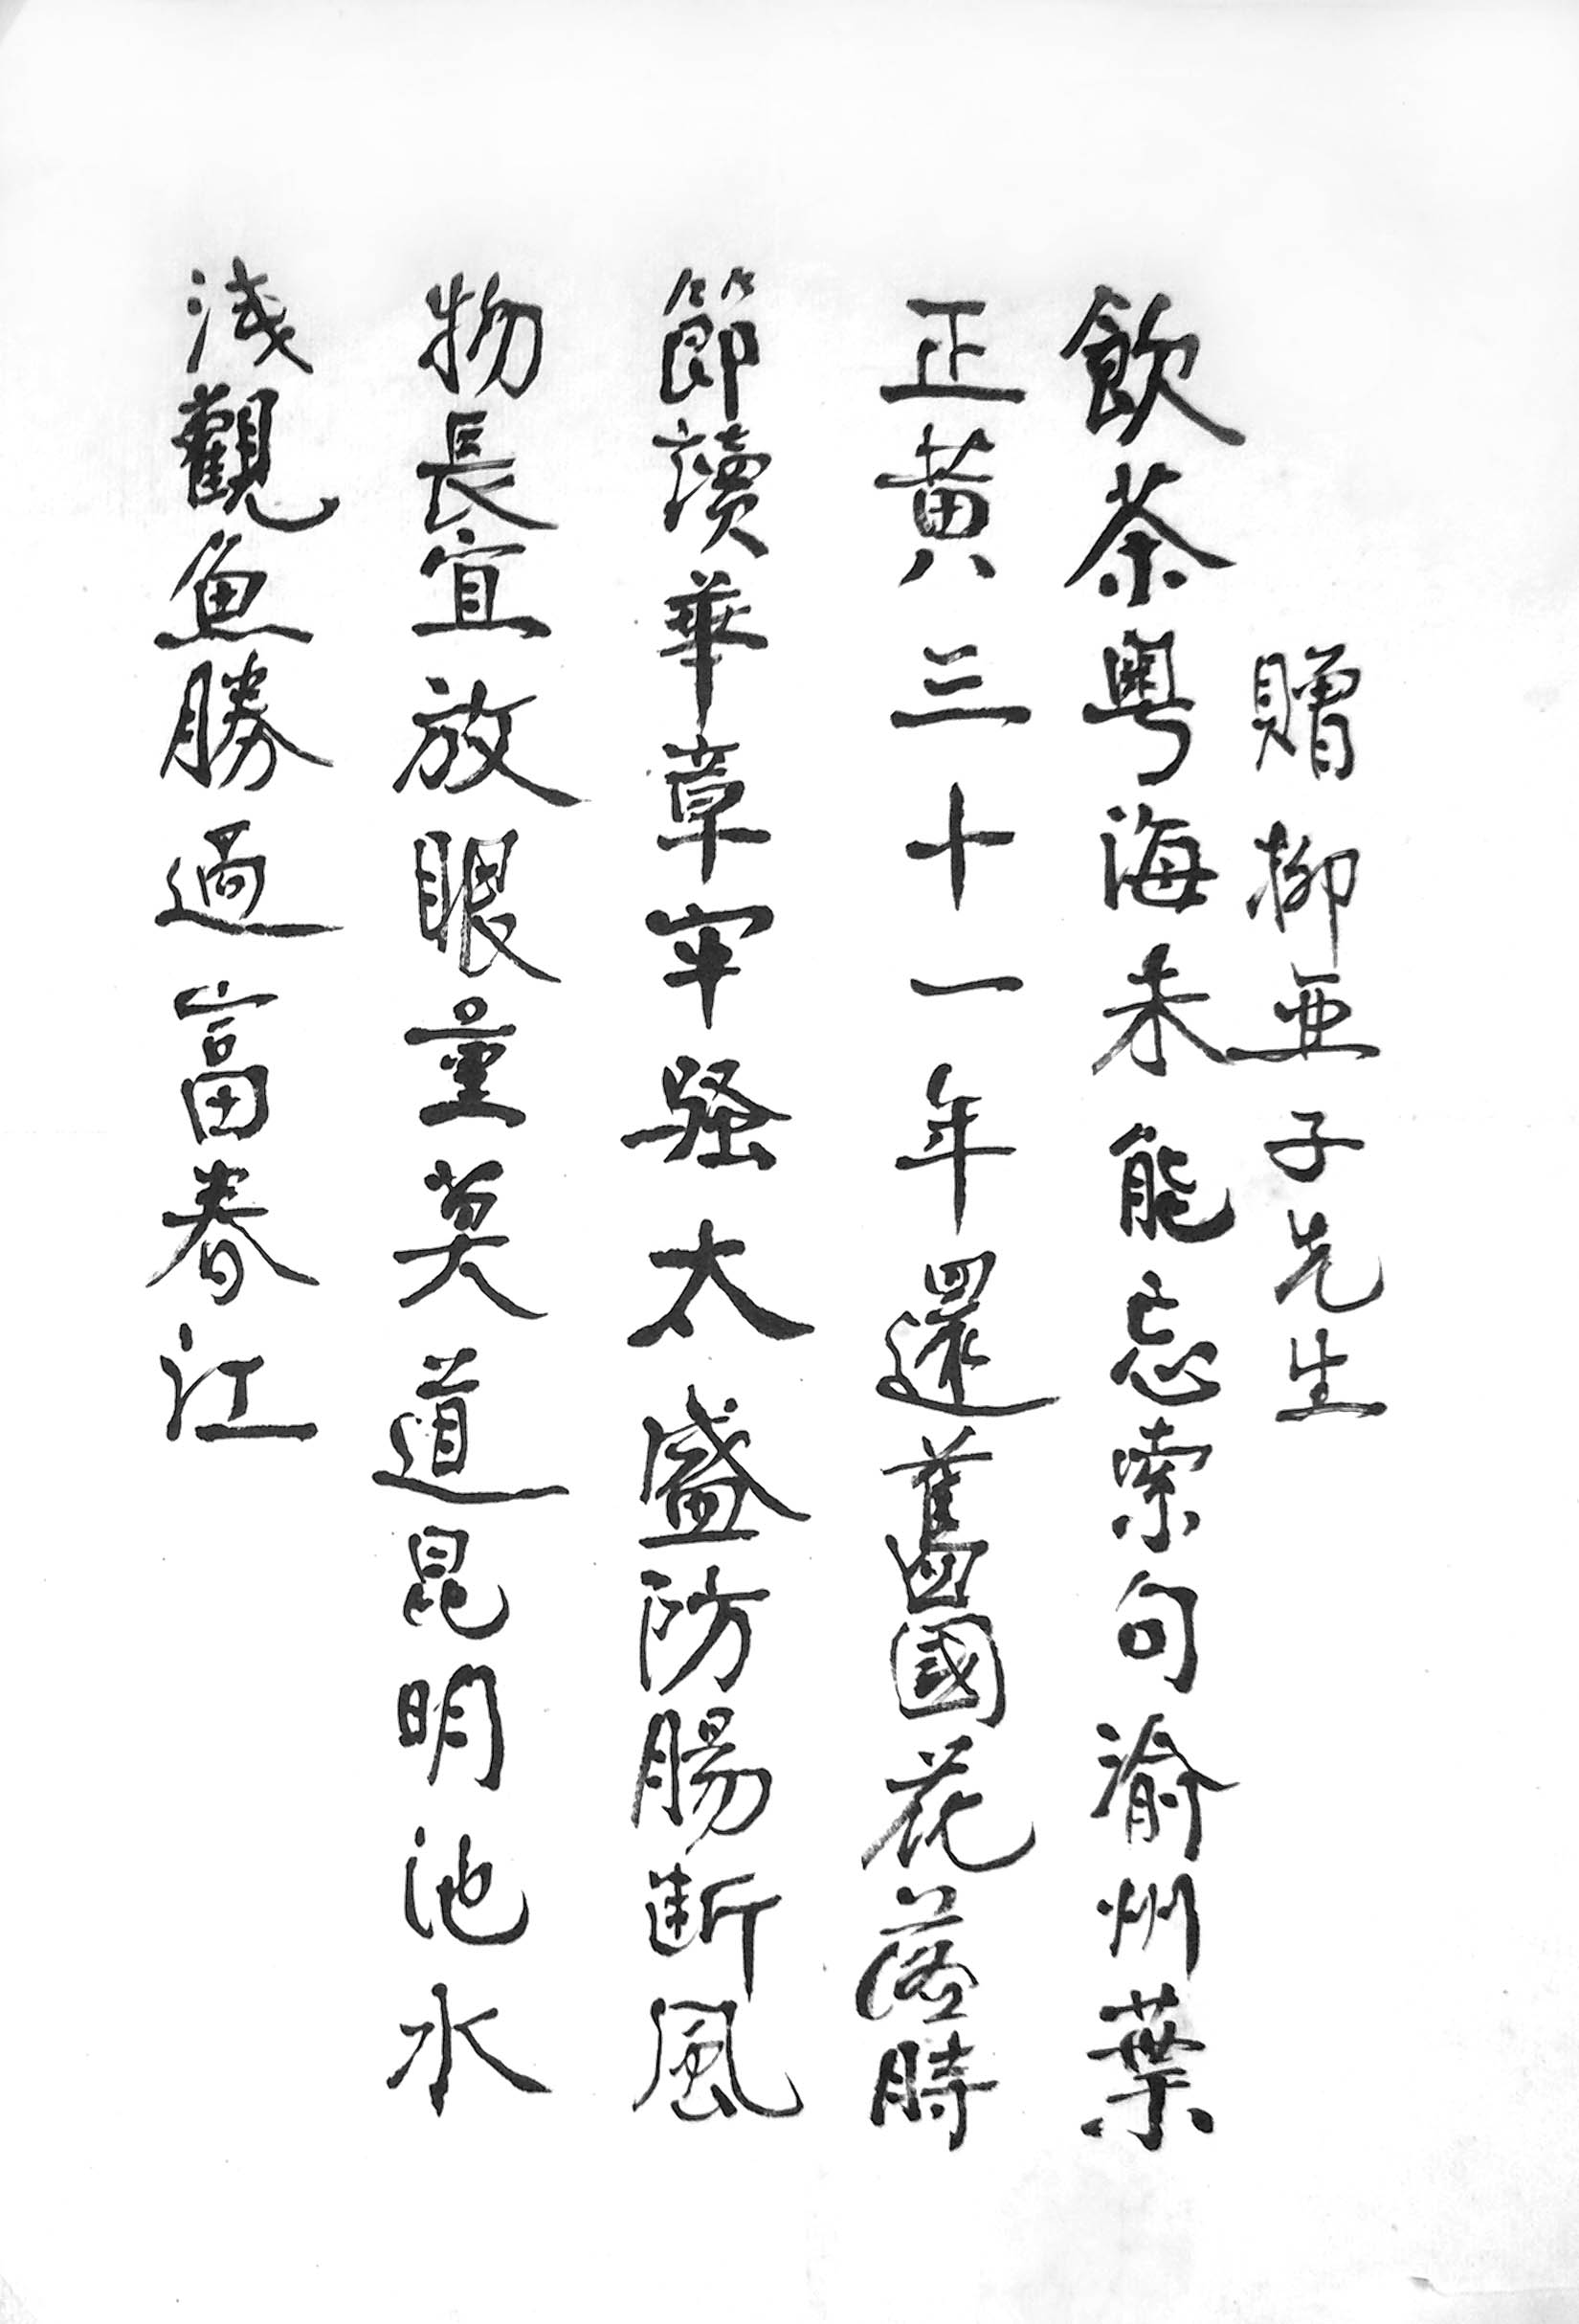 贈柳亞子先生
飲茶粵海未能忘索句渝州葉
正黃三十一年還舊國花落時
節讀華章牢騷太盛防腸斷風
物長宜放眼量莫道昆明池水
淺觀魚勝過富春江